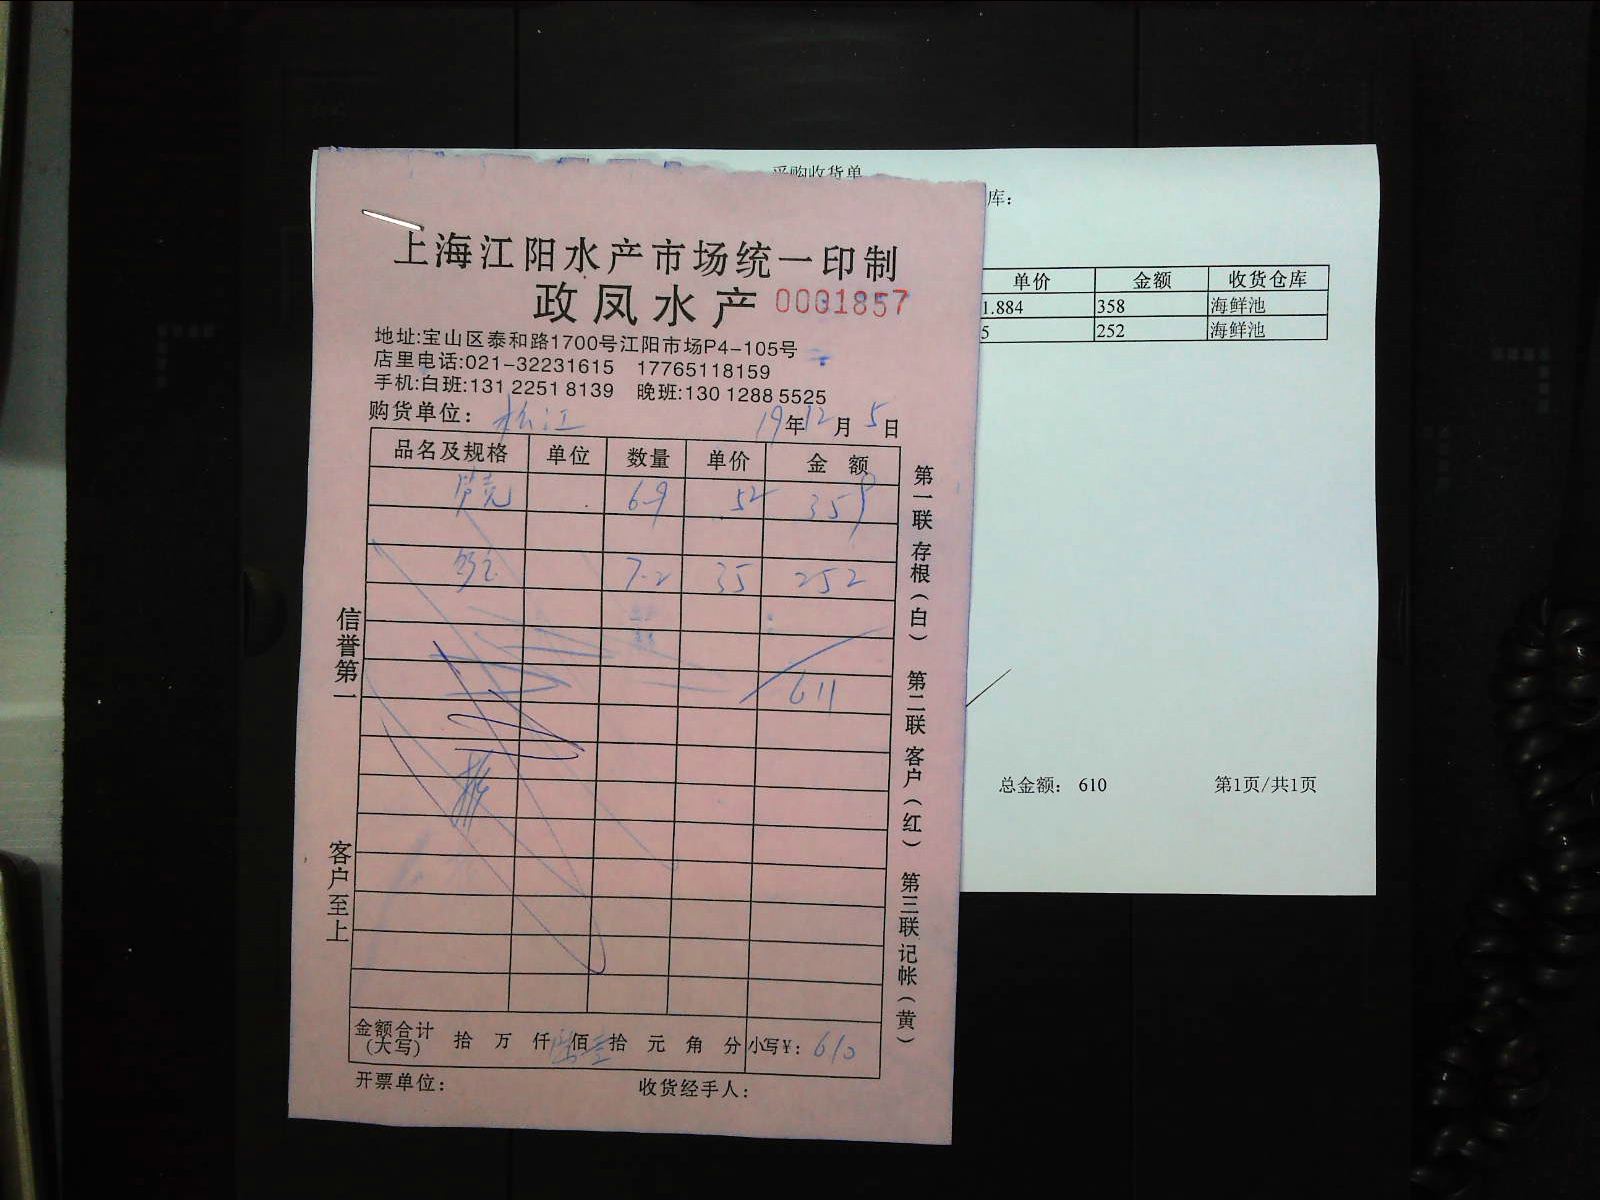 采购收货单
库：
上海江阳水产市场统一印制
政凤水产 0001857
地址:宝山区泰和路1700号江阳市场P4-105号
店里电话:021-32231615 17765118159
手机:白班:131 2251 8139 晚班:130 1288 5525
购货单位： 松江 19年12月5日
品名及规格 单位 数量 单价 金 额
6.9 52 359
7.2 35 252
611
金额合计(大写) 拾 万 仟 陆佰壹拾 元 角 分 小写¥：610
开票单位： 收货经手人：
信誉第一 客户至上
第一联 存根（白） 第二联 客户（红） 第三联 记帐（黄）
单价 金额 收货仓库
1.884 358 海鲜池
5 252 海鲜池
总金额： 610 第1页/共1页